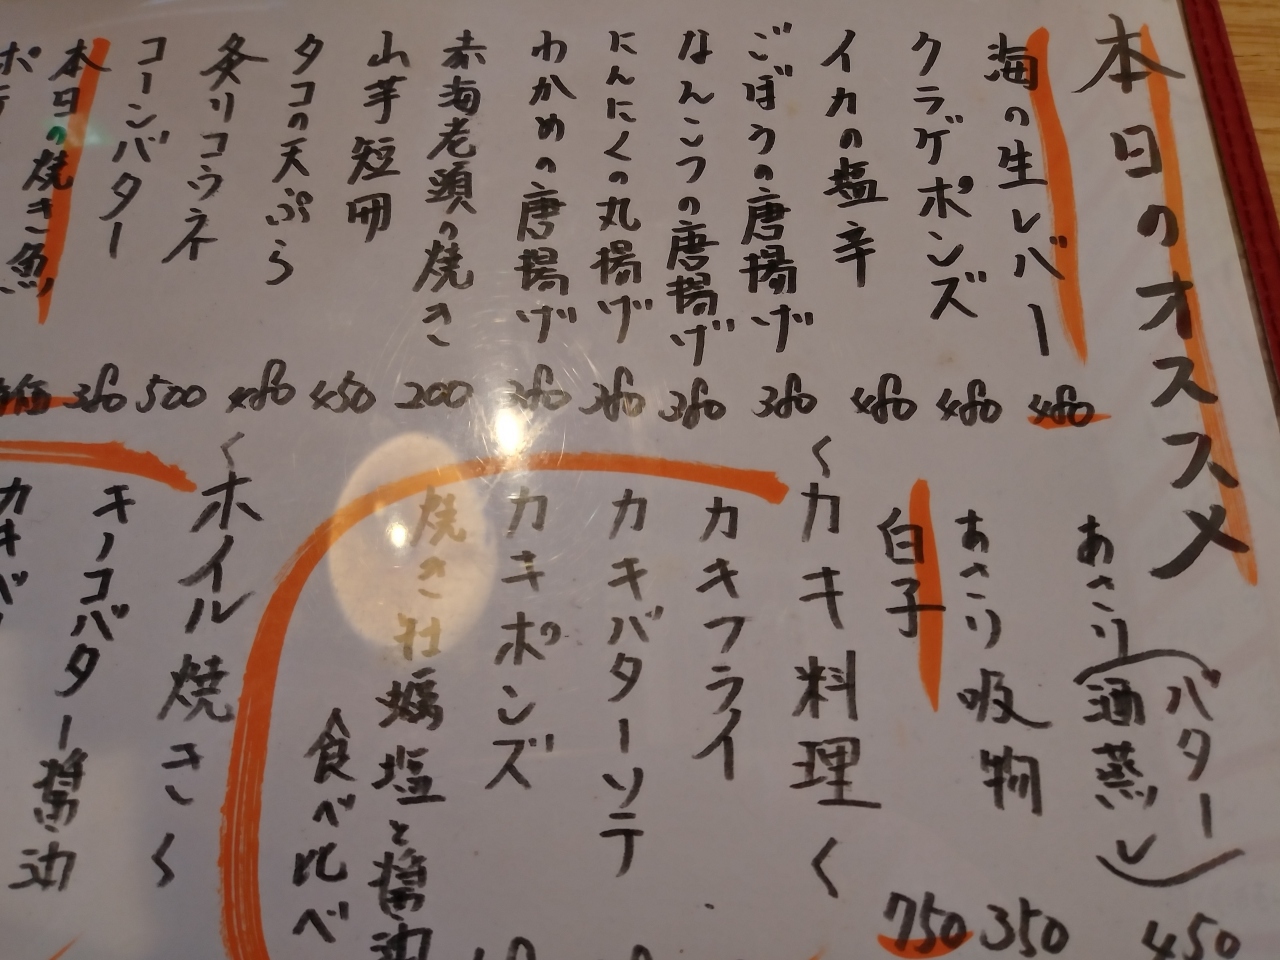 本日のオススメ
海の生レバー 480
クラゲポンズ 480
イカの塩辛 480
ごぼうの唐揚げ 380
なんこつの唐揚げ 380
にんにくの丸揚げ 380
わかめの唐揚げ 380
赤海老頭の焼き 200
山芋短冊 450
タコの天ぷら 480
炙りコウネ 500
コーンバター 380
本日の焼き魚
あさり(バター
酒蒸し) 450
あさり吸物 350
白子 750
くカキ料理く
カキフライ
カキバターソテ
カキポンズ
焼き牡蠣塩と醤油
食べ比べ
くホイル焼きく
キノコバター醤油